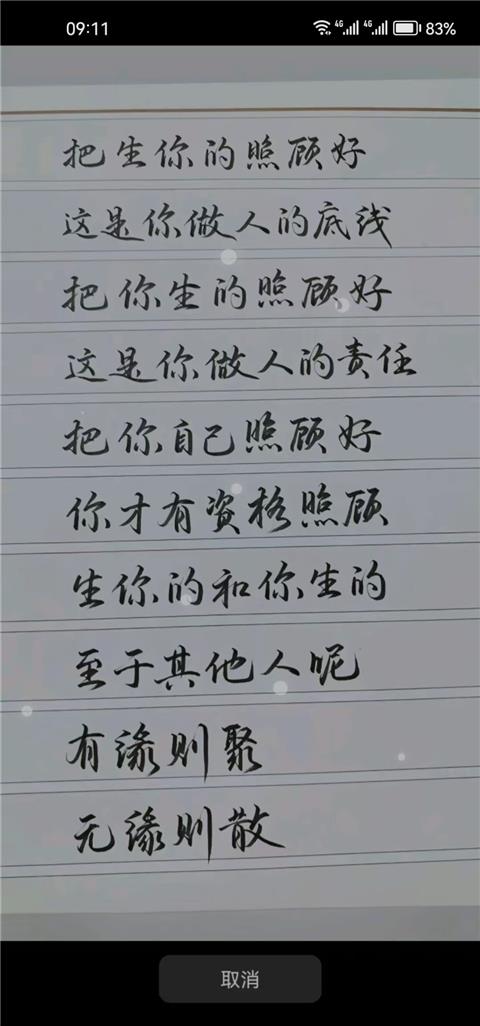 09:11
4G 4G 83%
把生你的照顾好
这是你做人的底线
把你生的照顾好
这是你做人的责任
把你自己照顾好
你才有资格照顾
生你的和你生的
至于其他人呢
有缘则聚
无缘则散
取消